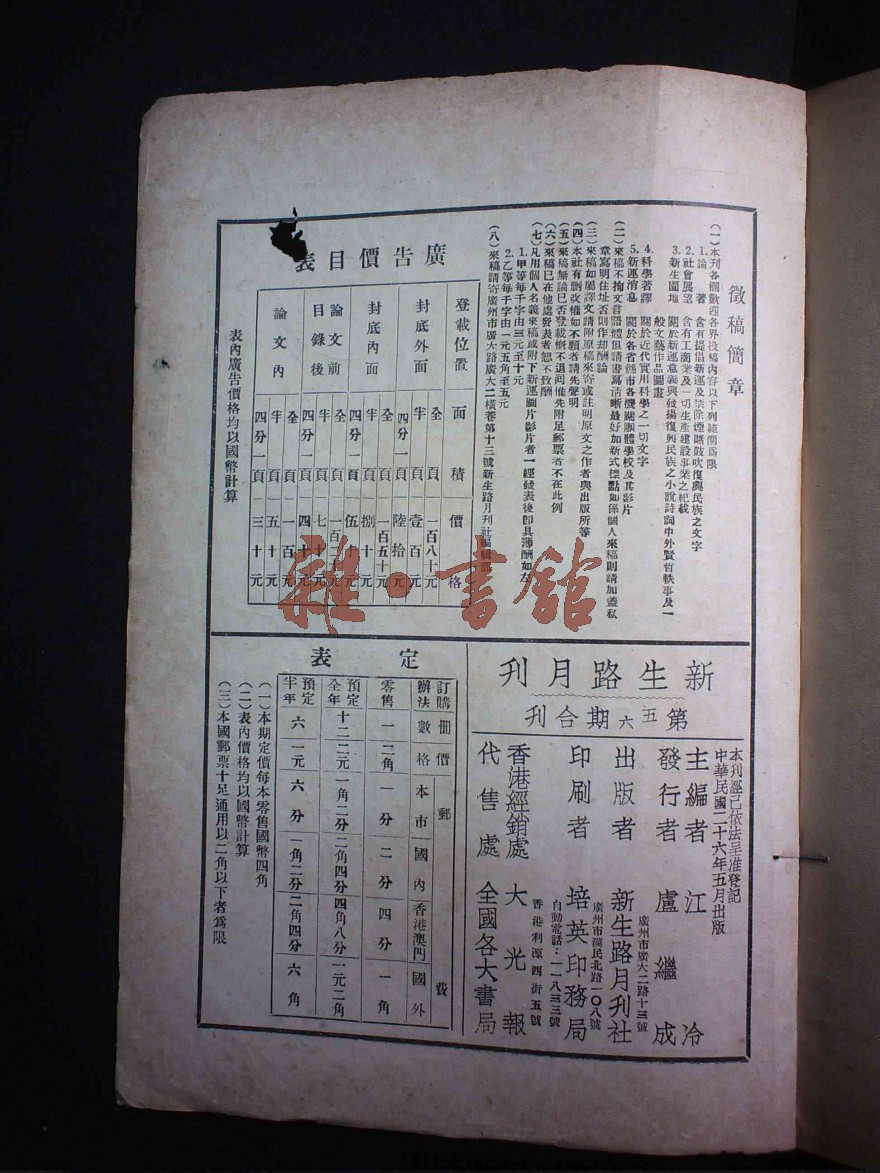 徵稿簡章
(一)本刊各欄歡迎各界投稿內容以下列範圍爲限
1.論 著 含有提倡新運及禁除煙賭鼓吹復興民族之文字
2.社會展望 含有工商業及一切生產建設事業之紀載
3.新生園地 關於新運意義與發揚復興民族之小說詩詞中外賢哲軼事及一
般文藝作品圖畫
4.科學著譯 關於近代實用科學之一切文字
5.新運消息 關於各省縣市各機關團體學校及其影片
(二)來稿不拘文言語體但請書寫清晰最好加新式標點如係個人來稿則請加蓋私
章寫明住址否則作却酬論
(三)來稿如屬譯文請附原稿來寄或註明原文之作者與出版所等
(四)本社有刪改權如不願者請先聲明
(五)來稿無論已否登載概不退囘惟先附足郵票者不在此例
(六)來稿已在他處發表者恕不致酬
(七)凡用個人名義來稿或附下新運圖片影片者一經發表後卽具薄酬如左
1.甲等每千字由三元至十元
2.乙等每千字由一元五角至五元
(八)來稿請寄廣州市廣大路廣大二橫巷第十三號新生路月刊社編輯部
廣告價目表
登載位置 面積 價格
封底外面 全頁 一百八十元
半頁 壹百元
四分一頁 陸拾元
封底內面 全頁 一百五十元
半頁 捌十元
四分一頁 伍十元
論文前目錄後 全頁 一百二十元
半頁 七十元
四分一頁 四十元
論文內 全頁 一百元
半頁 五十元
四分一頁 三十元
表內廣告價格均以國幣計算
雜·書館
新生路月刊
第五六期合刊
本刊經已依法呈准登記
中華民國二十六年五月出版
主編者 江冷
發行者 盧繼成
廣州市廣大二路十三號
出版者 新生路月刊社
廣州市漢民北路一〇八號
印刷者 培英印務局
自動電話:一一八三三號
香港利源西街五號
香港經銷處 大光報
代售處 全國各大書局
定 表
訂購辦法 冊數 價格 郵費
本市 國內 香港澳門 國外
零售 一 二角 一分 二分 四分 一角
預定全年 十二 二元 一角二分 二角四分 四角八分 一元二角
預定半年 六 一元 六分 一角二分 二角四分 六角
(一)本期定價每本零售國幣四角
(二)表內價格均以國幣計算
(三)本國郵票十足通用以二角以下者爲限